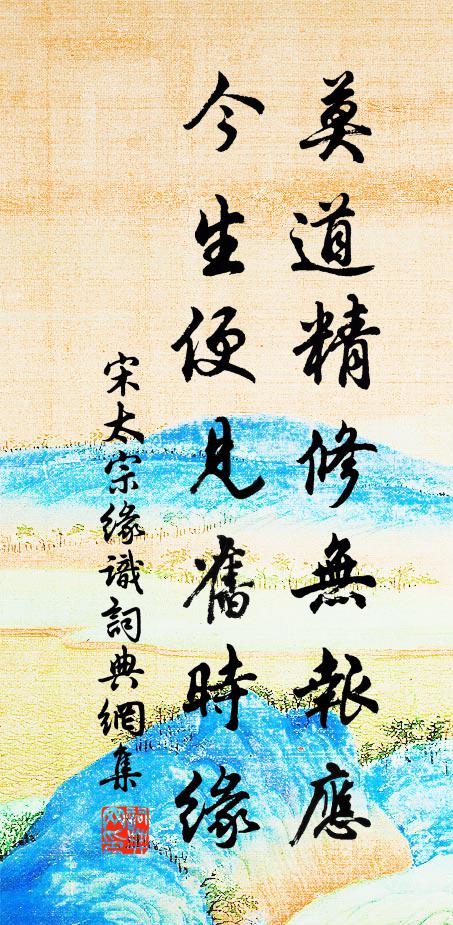 莫道精修無報應
今生便見舊時緣
宋太宗緣識詞典網集